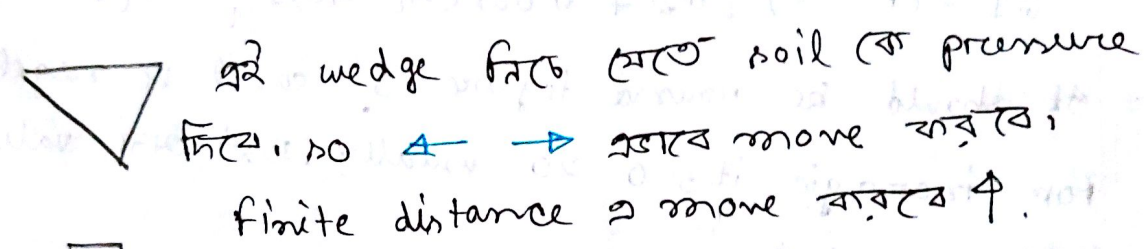 এই wedge নিচে যেতে soil কে pressure
দিবে। so ← → এভাবে move করবে।
finite distance এ move করবে ↑.